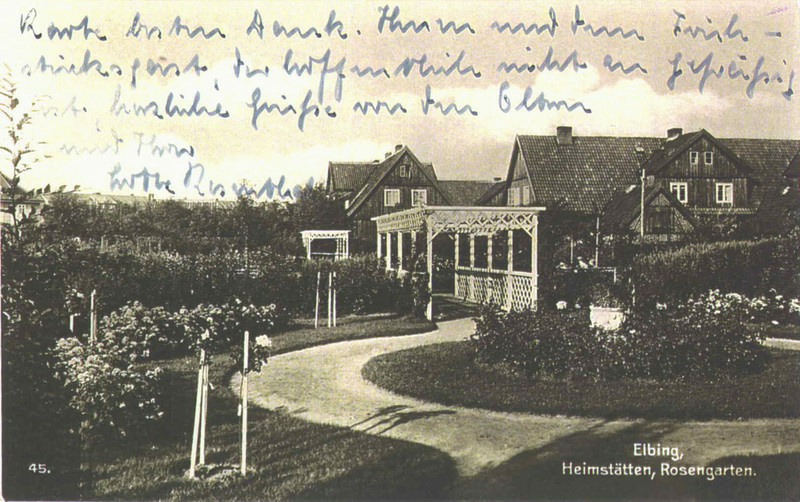 Karte besten Dank. Ihnen und dem Früh-
stücksgeist, der hoffentlich nicht zu gefräßig
ist, herzliche Grüße von den Eltern
und Ihrer
Lotte
45.
Elbing,
Heimstätten, Rosengarten.